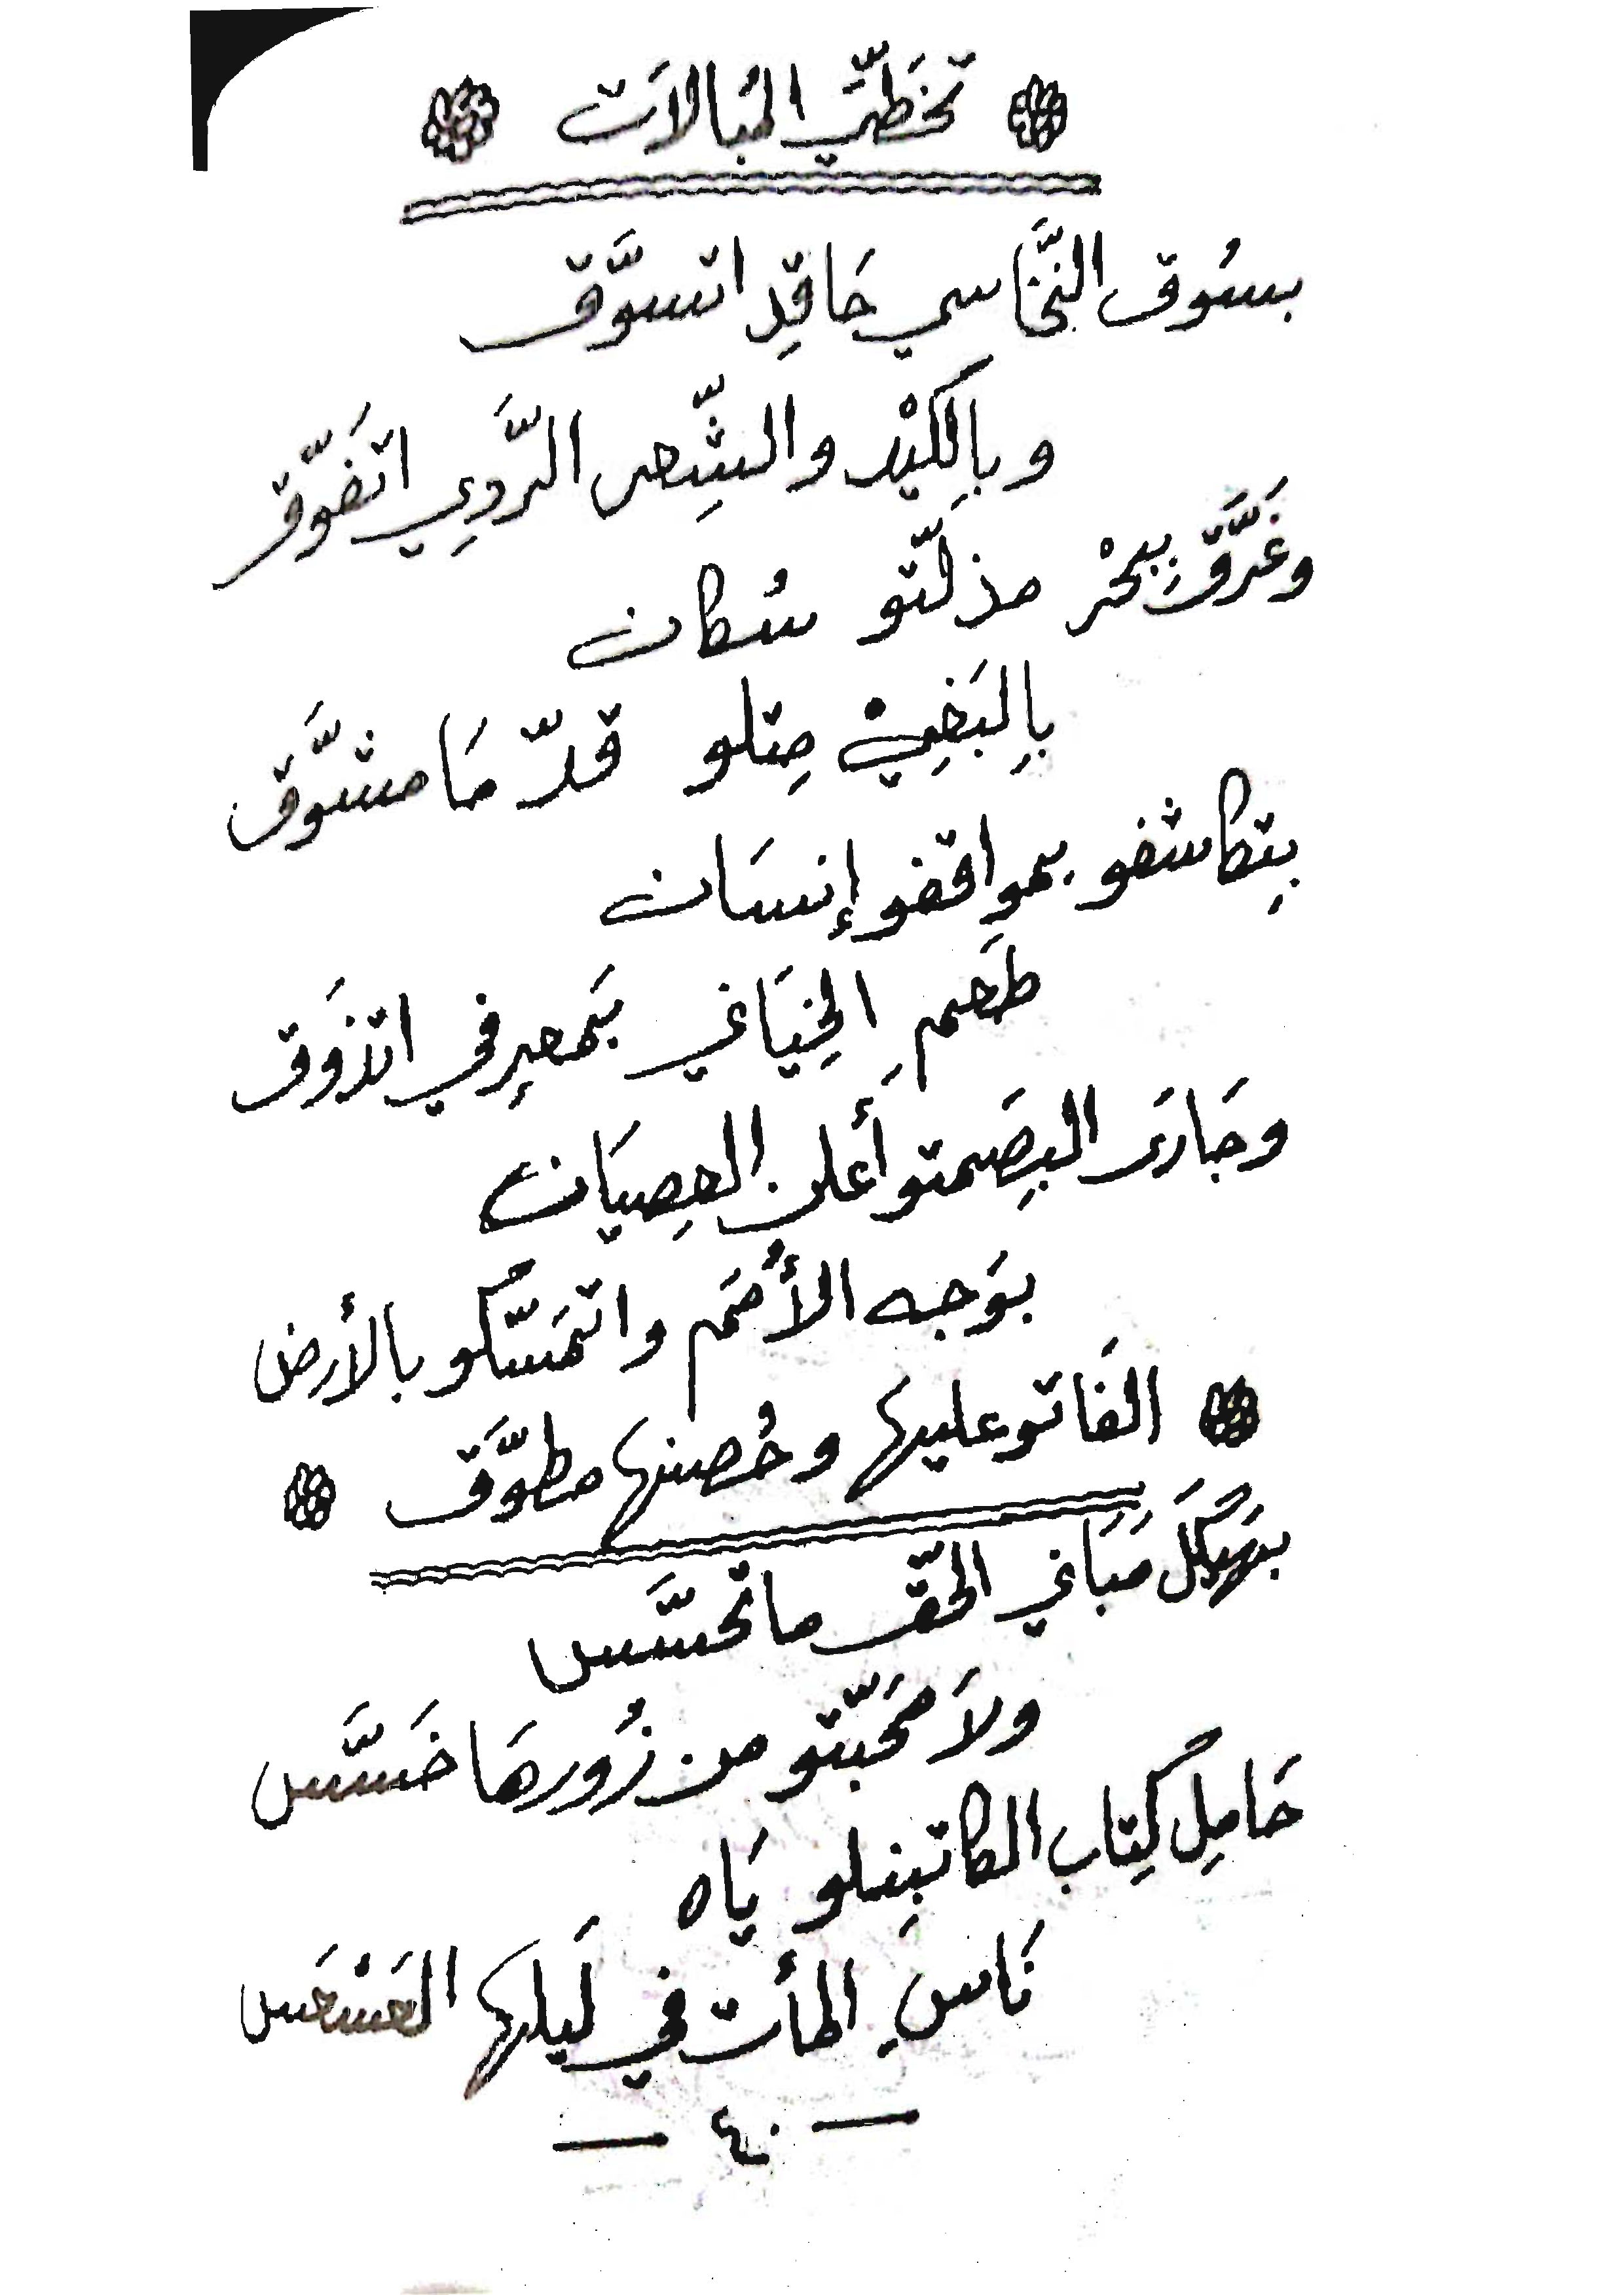 تخطّي المُبالاَت
بسُوق النَّخَّاسي حَاقِد اتسوَّق
وبِالكَيْد والشِّعر الرَّدِي اتفَوَّق
وغَرَّق بِبحْر مذلّتو سُكان
بِالبَغِيْ مِتلو قدّ مَا مشوَّق
بِتكاشفو بموِاقفو إنسَان
طَعم الخِيَاني بَمعرِفي اتذوَق
وجَارَى البِصَمتو أَعلن العِصيَان
بوَجه الأُمَم واتمَسّكو بالأرض
الفَاتو عليها وحُصنها مطوَّق
بهَيكَل مَبَاني الحَقّ ما تحسَّس
ولاَ محَبّتو من زُورهَا خَسَّس
حَامِل كِتاب الكاتبِنلو يَاه
نَاسِ المأت في لَيلها العَسْعَس
— ٤٠ —